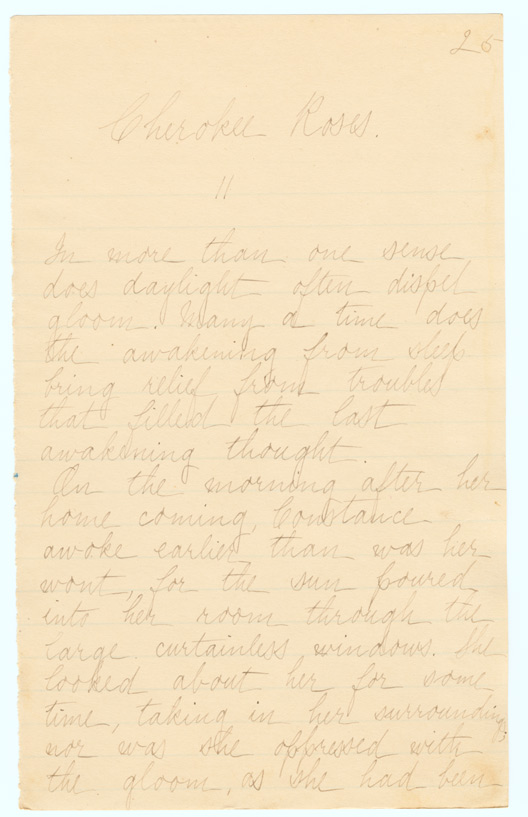 25
Cherokee Roses.
11
In more than one sense
does daylight often dispel
gloom. Many a time does
the awakening from sleep
bring relief from troubles
that filled the last
awakening thought.
On the morning after her
home coming, Constance
awoke earlier than was her
wont, for the sun poured
into her room through the
large curtainless windows. She
looked about her for some
time, taking in her surroundings
nor was she oppressed with
the gloom, as she had been